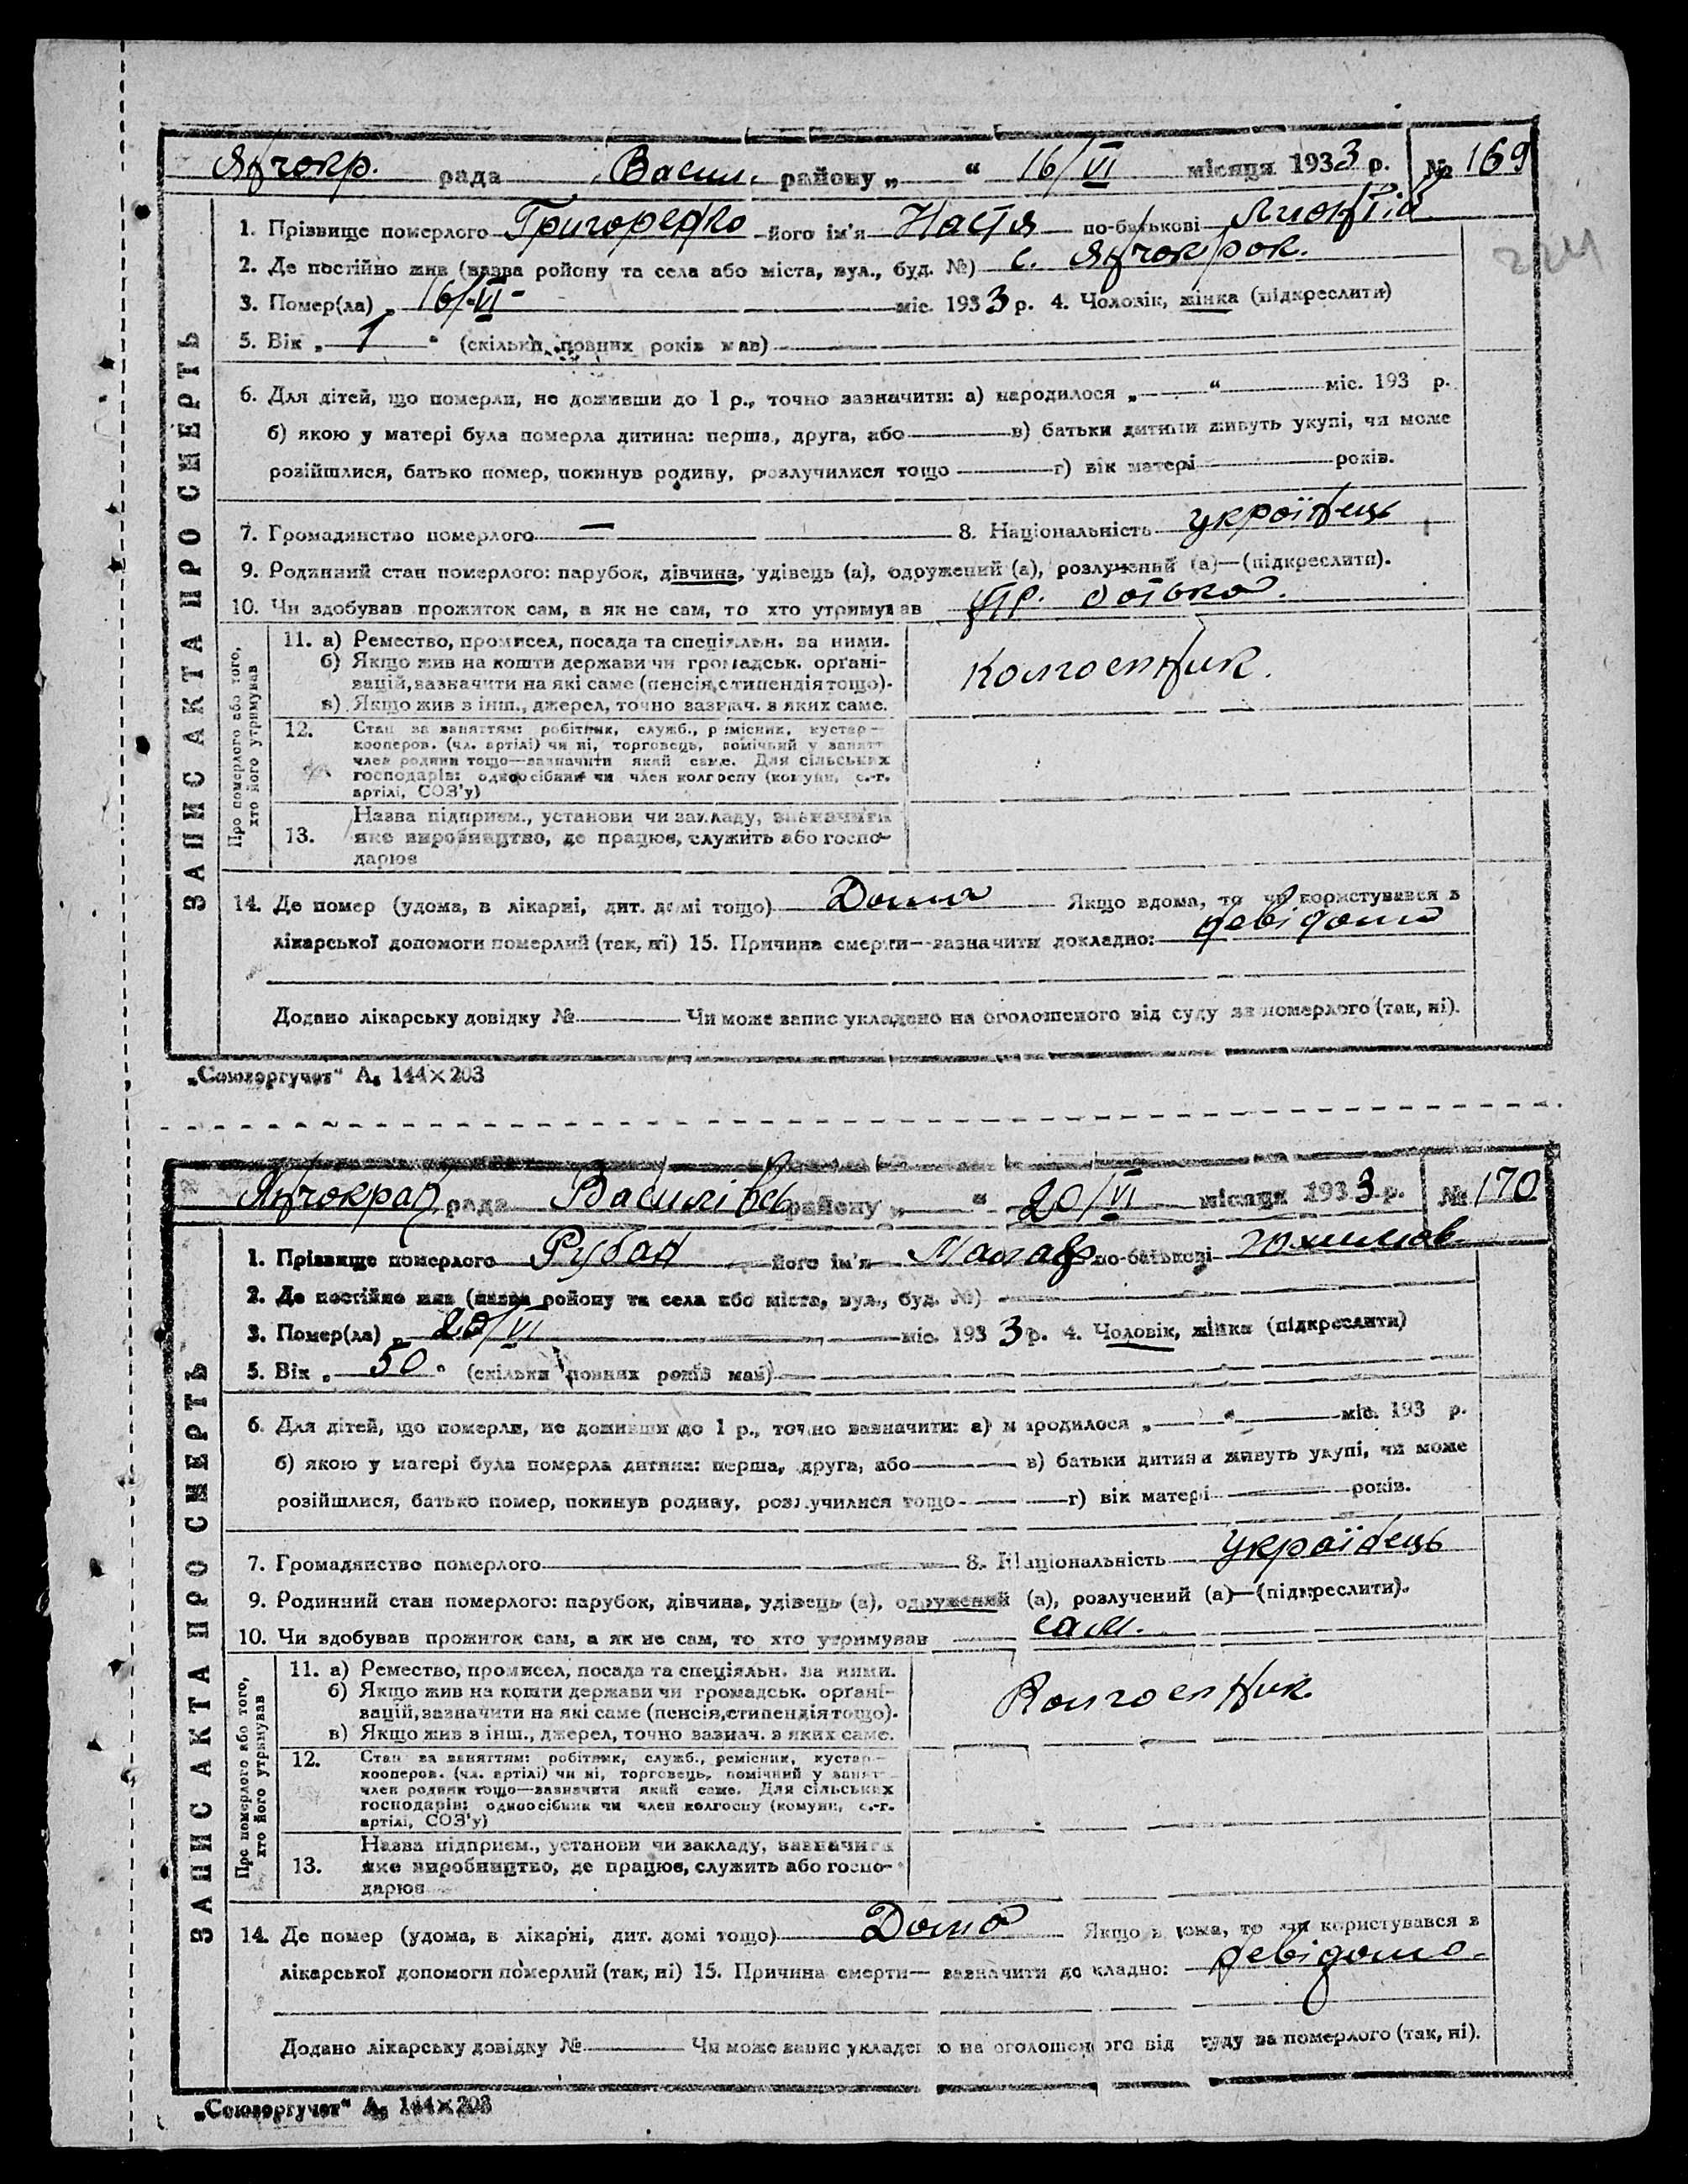 Янчокр. рада Васил. району „ “ 16/VI місяця 1933 р. № 169
224
ЗАПИС АКТА ПРО СМЕРТЬ
1. Прізвище померлого Григоренко його ім'я Настя по-батькові
2. Де постійно жив (назва ройону та села або міста, вул., буд. №) с. Янчокрок.
3. Помер(ла) „ 16/VI - міс. 1933 р. 4. Чоловік, жінка (підкреслити)
5. Вік „ 1 “ (скільки повних років мав)
6. Для дітей, що померли, не доживши до 1 р., точно зазначити: а) народилося „ “ міс. 193 р.
б) якою у матері була померла дитина: перша, друга, або в) батьки дитини живуть укупі, чи може
розійшлися, батько помер, покинув родину, розлучилися тощо г) вік матері років.
7. Громадянство померлого — 8. Національність українець
9. Родинний стан померлого: парубок, дівчина, удівець (а), одружений (а), розлучений (а)—(підкреслити).
10. Чи здобував прожиток сам, а як не сам, то хто утримував утр. батько.
Про померлого або того, хто його утримував
11. а) Ремество, промисел, посада та спеціяльн. за ними.
б) Якщо жив на кошти держави чи громадськ. орґані-
зацій, зазначити на які саме (пенсія, стипендія тощо).
в) Якщо жив з інш., джерел, точно зазнач. з яких саме.
Колгоспник.
12. Стан за заняттям: робітник, служб., ремісник, кустар—
кооперов. (чл. артілі) чи ні, торговець, помічний у занятт
член родини тощо—зазначити який саме. Для сільських
господарів: одноосібник чи член колгоспу (комуни, с.-г.
артілі, СОЗ'у)
13. Назва підприєм., установи чи закладу, зазначити
яке виробництво, де працює, служить або госпо-
дарює
14. Де помер (удома, в лікарні, дит. домі тощо) Дома Якщо вдома, то чи користувався з
лікарської допомоги померлий (так, ні) 15. Причина смерти—зазначити докладно: невідомо
Додано лікарську довідку № Чи може запис укладено на оголошеного від суду за померлого (так, ні).
„Союзоргучет“ А₅ 144×203
Янчокрак. рада Василівсь району „ “ 20/VI місяця 1933 р. № 170
ЗАПИС АКТА ПРО СМЕРТЬ
1. Прізвище померлого Рубан його ім'я Макар по-батькові Юхимов.
2. Де постійно жив (назва ройону та села або міста, вул., буд. №)
3. Помер(ла) „ 20/VI міс. 1933 р. 4. Чоловік, жінка (підкреслити)
5. Вік „ 50 “ (скільки повних років мав)
6. Для дітей, що померли, не доживши до 1 р., точно зазначити: а) народилося „ “ міс. 193 р.
б) якою у матері була померла дитина: перша, друга, або в) батьки дитини живуть укупі, чи може
розійшлися, батько помер, покинув родину, розлучилися тощо г) вік матері років.
7. Громадянство померлого 8. Національність українець
9. Родинний стан померлого: парубок, дівчина, удівець (а), одружений (а), розлучений (а)—(підкреслити).
10. Чи здобував прожиток сам, а як не сам, то хто утримував сам.
Про померлого або того, хто його утримував
11. а) Ремество, промисел, посада та спеціяльн. за ними.
б) Якщо жив на кошти держави чи громадськ. орґані-
зацій, зазначити на які саме (пенсія, стипендія тощо).
в) Якщо жив з інш., джерел, точно зазнач. з яких саме.
Колгоспник
12. Стан за заняттям: робітник, служб., ремісник, кустар—
кооперов. (чл. артілі) чи ні, торговець, помічний у занятт
член родини тощо—зазначити який саме. Для сільських
господарів: одноосібник чи член колгоспу (комуни, с.-г.
артілі, СОЗ'у)
13. Назва підприєм., установи чи закладу, зазначити
яке виробництво, де працює, служить або госпо-
дарює
14. Де помер (удома, в лікарні, дит. домі тощо) Дома Якщо вдома, то чи користувався з
лікарської допомоги померлий (так, ні) 15. Причина смерти— зазначити докладно: невідомо.
Додано лікарську довідку № Чи може запис укладено на оголошеного від суду за померлого (так, ні).
„Союзоргучет“ А₅ 144×203